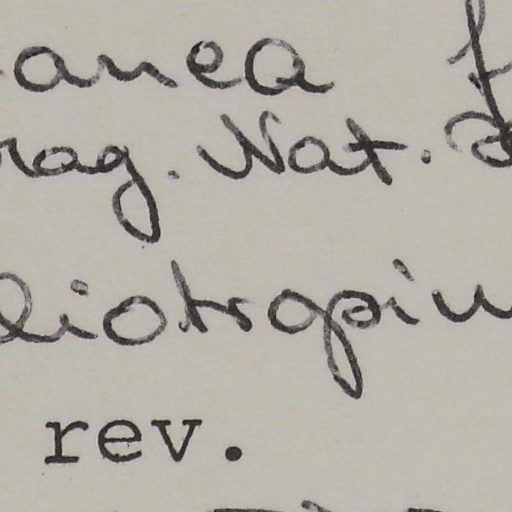 anea f
rag. Nat.
liotropiu
rev.